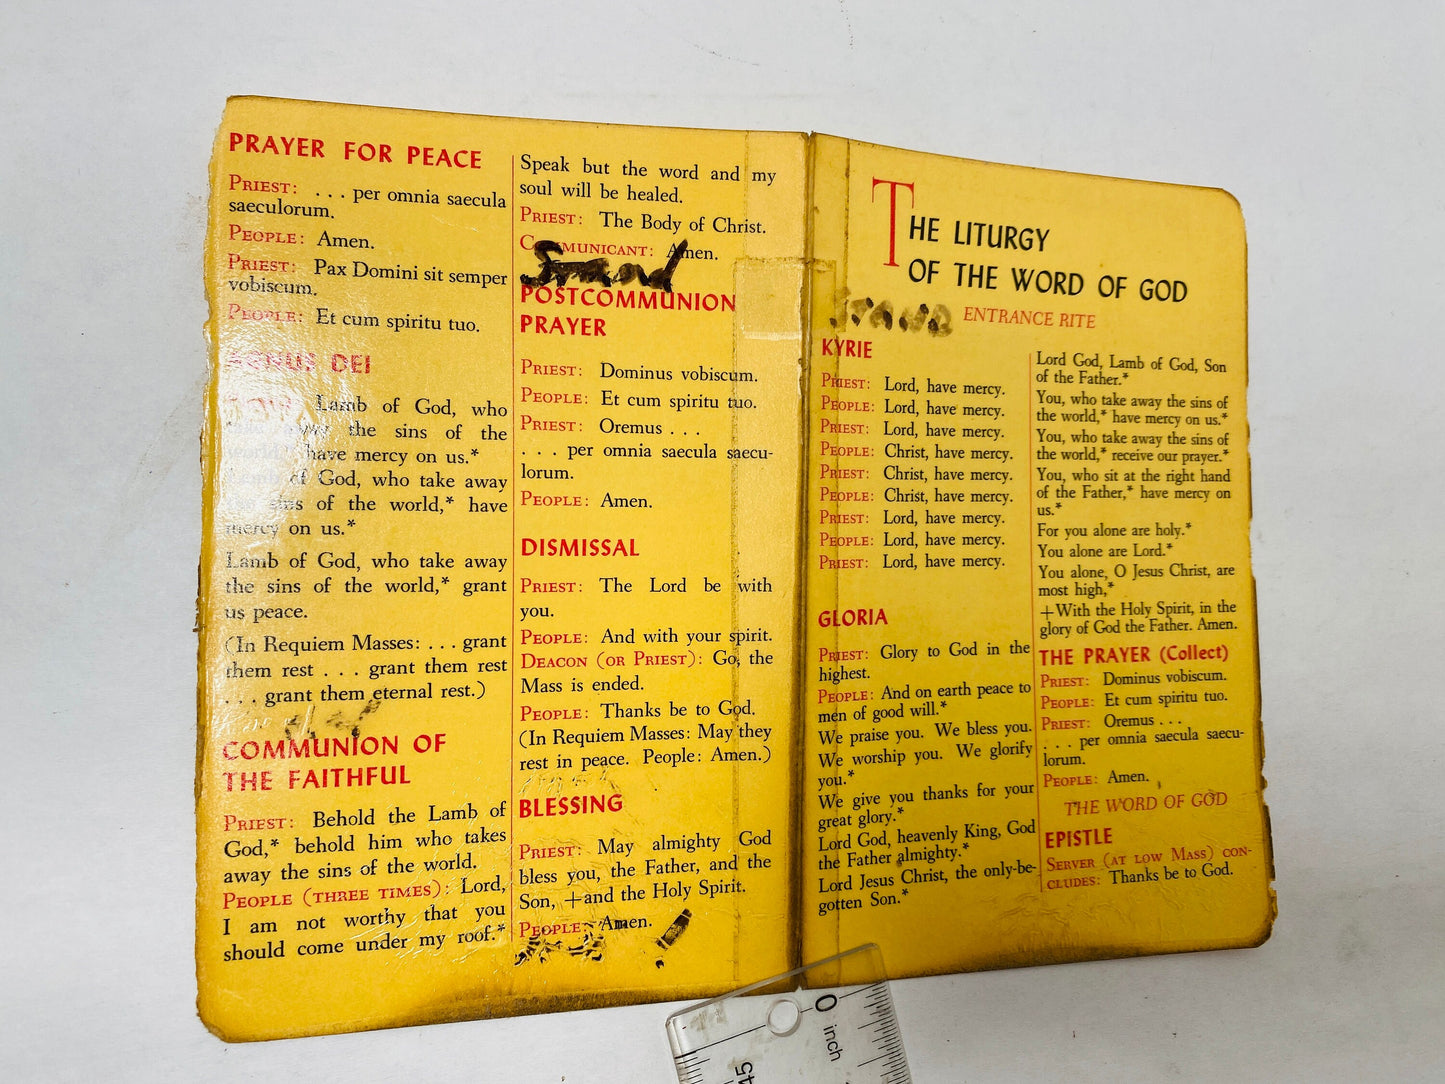 PRAYER FOR PEACE
PRIEST: . . . per omnia saecula
saeculorum.
PEOPLE: Amen.
PRIEST: Pax Domini sit semper
vobiscum.
PEOPLE: Et cum spiritu tuo.
AGNUS DEI
Lamb of God, who
take away the sins of the
world,* have mercy on us.*
Lamb of God, who take away
the sins of the world,* have
mercy on us.*
Lamb of God, who take away
the sins of the world,* grant
us peace.
(In Requiem Masses: . . . grant
them rest . . . grant them rest
. . . grant them eternal rest.)
COMMUNION OF
THE FAITHFUL
PRIEST: Behold the Lamb of
God,* behold him who takes
away the sins of the world.
PEOPLE (THREE TIMES): Lord,
I am not worthy that you
should come under my roof.*
Speak but the word and my
soul will be healed.
PRIEST: The Body of Christ.
COMMUNICANT: Amen.
POSTCOMMUNION
PRAYER
PRIEST: Dominus vobiscum.
PEOPLE: Et cum spiritu tuo.
PRIEST: Oremus . . .
. . . per omnia saecula saecu-
lorum.
PEOPLE: Amen.
DISMISSAL
PRIEST: The Lord be with
you.
PEOPLE: And with your spirit.
DEACON (OR PRIEST): Go, the
Mass is ended.
PEOPLE: Thanks be to God.
(In Requiem Masses: May they
rest in peace. People: Amen.)
BLESSING
PRIEST: May almighty God
bless you, the Father, and the
Son, +and the Holy Spirit.
PEOPLE: Amen.
THE LITURGY
OF THE WORD OF GOD
STAND
ENTRANCE RITE
KYRIE
PRIEST: Lord, have mercy.
PEOPLE: Lord, have mercy.
PRIEST: Lord, have mercy.
PEOPLE: Christ, have mercy.
PRIEST: Christ, have mercy.
PEOPLE: Christ, have mercy.
PRIEST: Lord, have mercy.
PEOPLE: Lord, have mercy.
PRIEST: Lord, have mercy.
GLORIA
PRIEST: Glory to God in the
highest.
PEOPLE: And on earth peace to
men of good will.*
We praise you. We bless you.
We worship you. We glorify
you.*
We give you thanks for your
great glory.*
Lord God, heavenly King, God
the Father almighty.*
Lord Jesus Christ, the only-be-
gotten Son.*
Lord God, Lamb of God, Son
of the Father.*
You, who take away the sins of
the world,* have mercy on us.*
You, who take away the sins of
the world,* receive our prayer.*
You, who sit at the right hand
of the Father,* have mercy on
us.*
For you alone are holy.*
You alone are Lord.*
You alone, O Jesus Christ, are
most high,*
+With the Holy Spirit, in the
glory of God the Father. Amen.
THE PRAYER (Collect)
PRIEST: Dominus vobiscum.
PEOPLE: Et cum spiritu tuo.
PRIEST: Oremus . . .
. . . per omnia saecula saecu-
lorum.
PEOPLE: Amen.
THE WORD OF GOD
EPISTLE
SERVER (AT LOW MASS) CON-
CLUDES: Thanks be to God.
0 inch
45